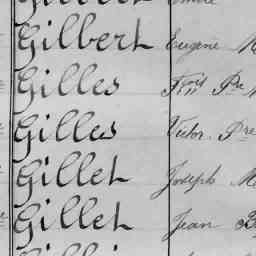 Gilbert Eugène
Gilles Fçois Pre
Gilles Victor Pre
Gillet Joseph
Gillet Jean